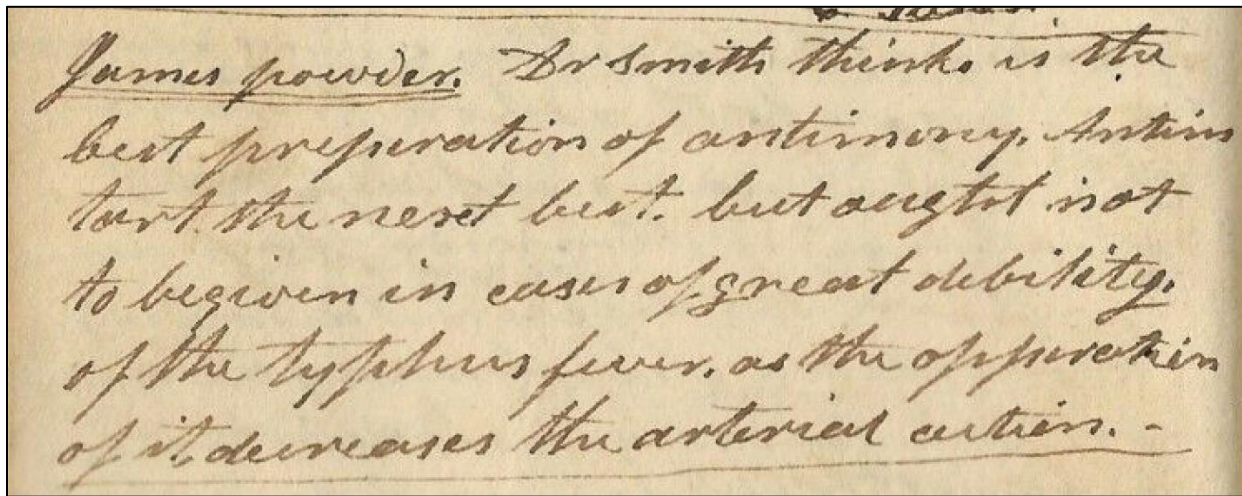 James powder. Dr Smith thinks is the
best preperation of antimony. Antim
tart. the next best. but aught not
to be given in cases of great debility.
of the typhus fever. as the opperation
of it decreases the arterial action. -